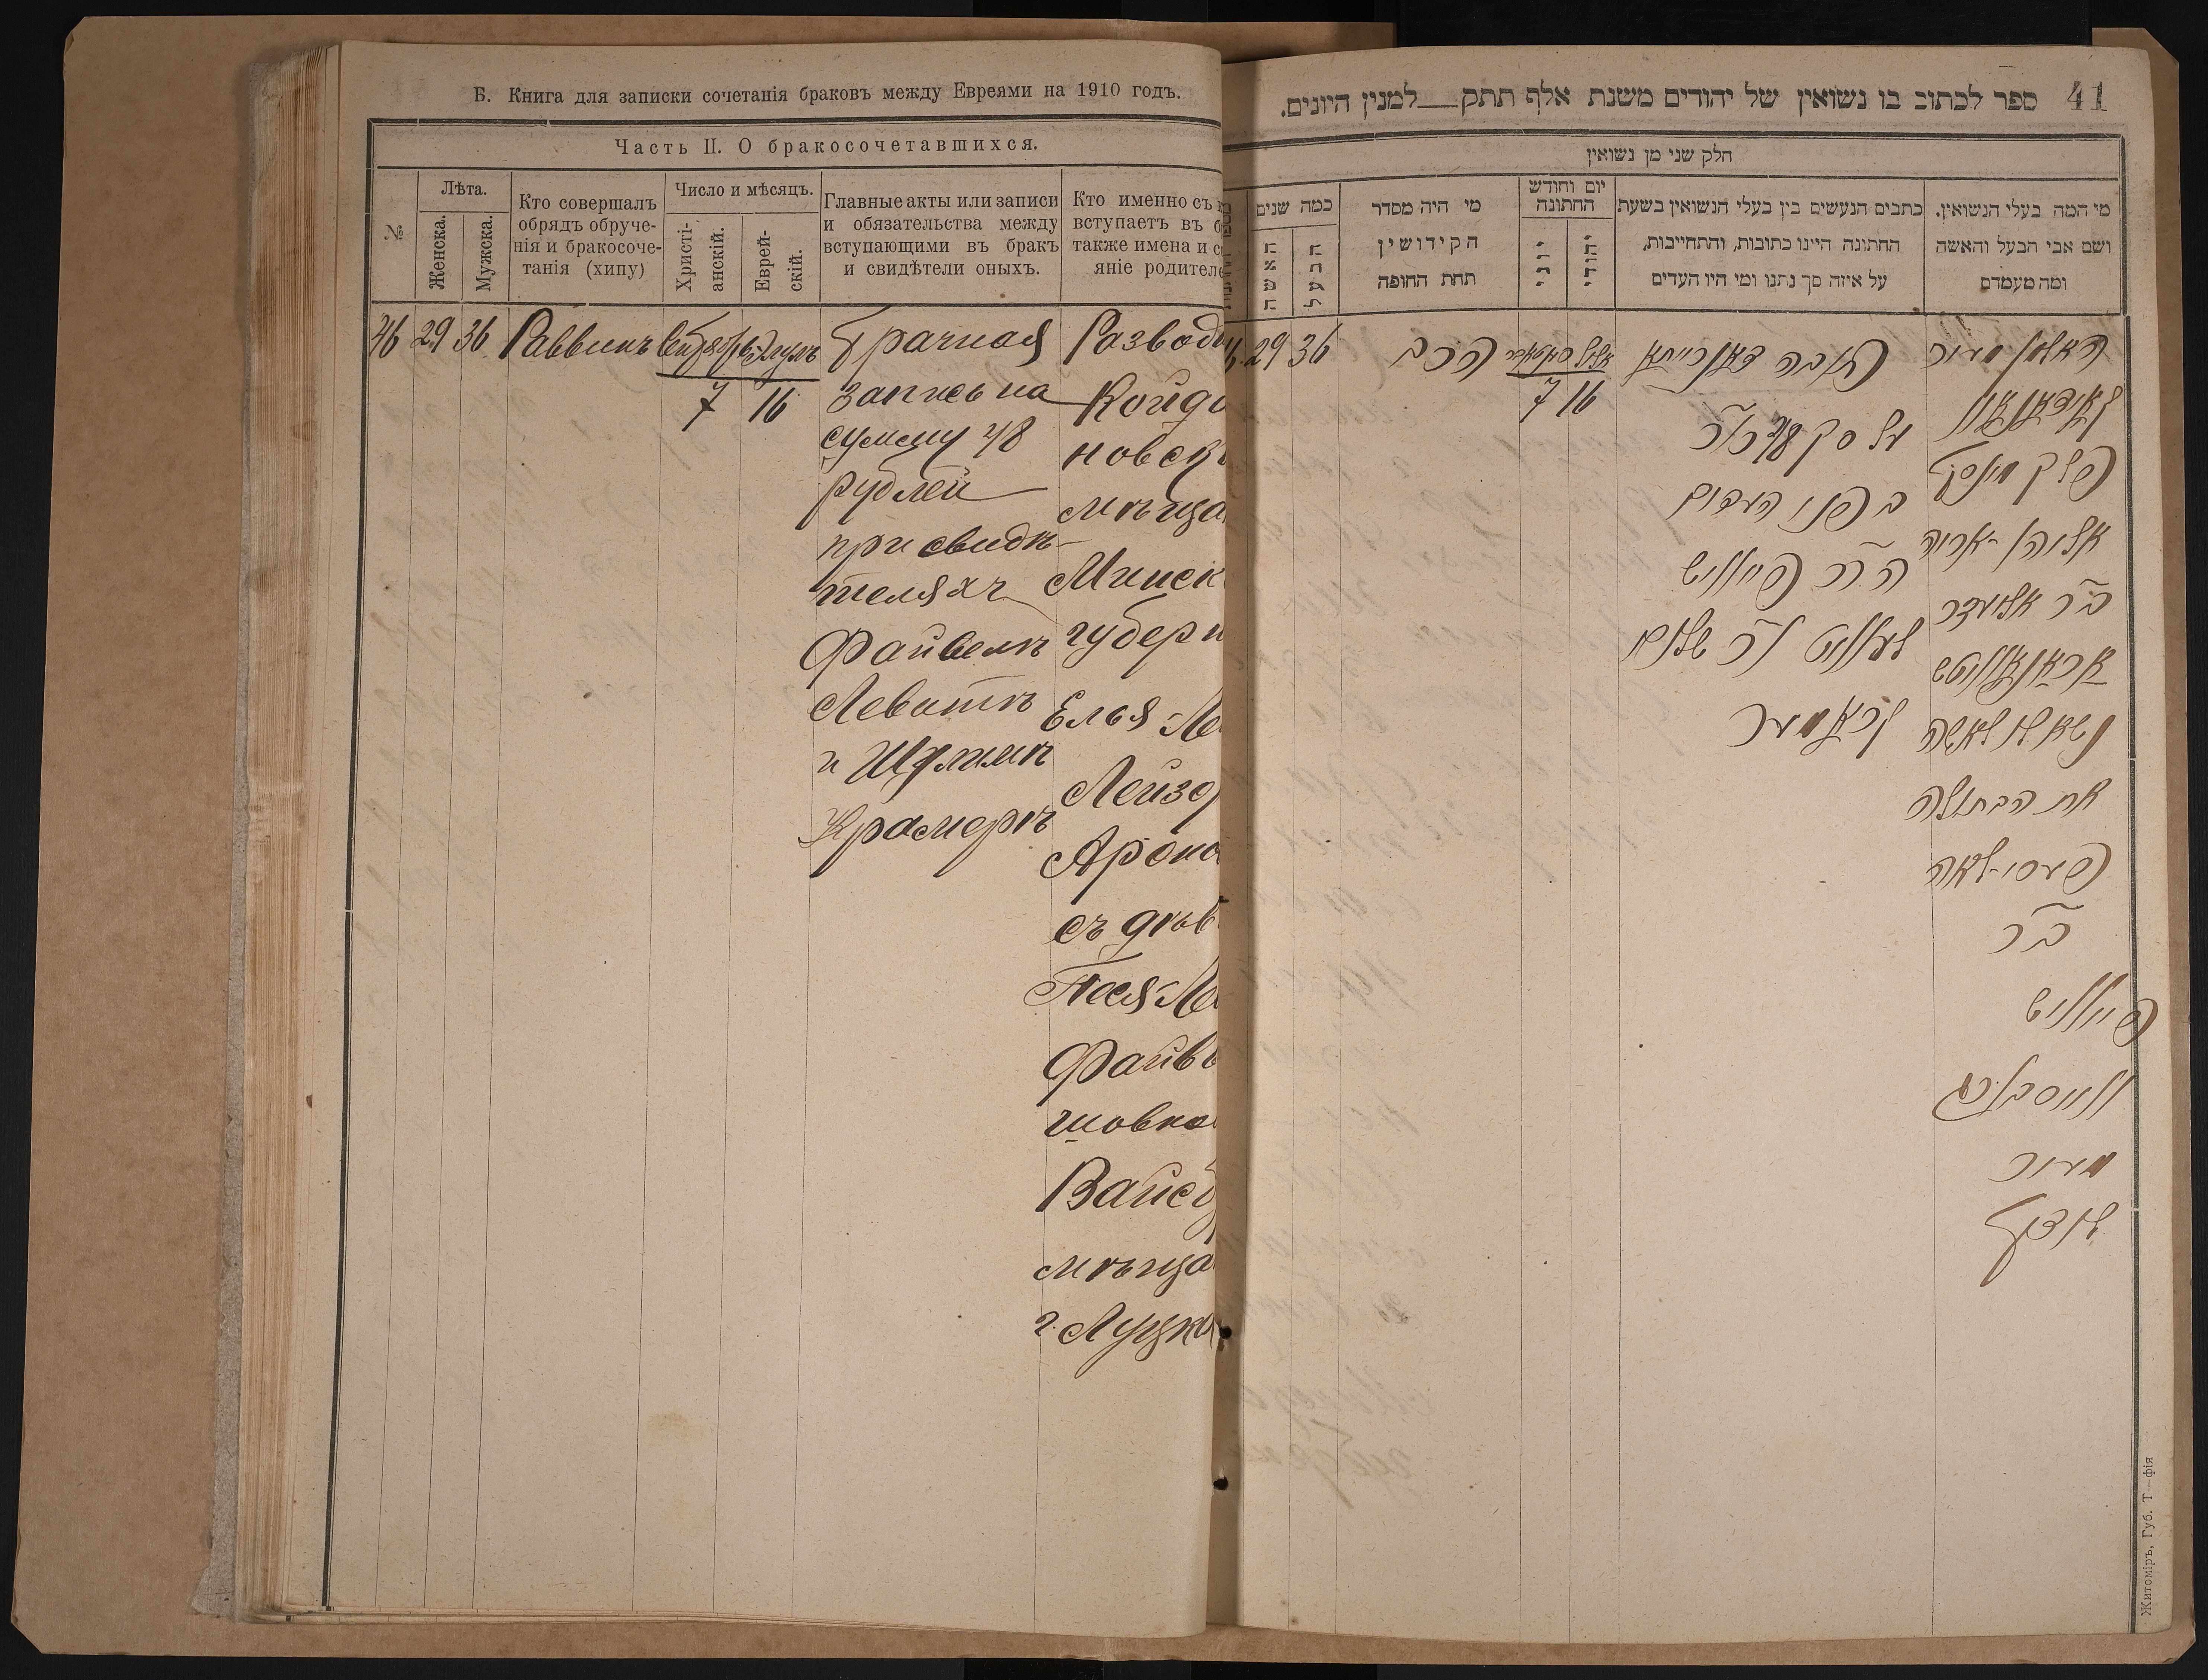 Б. Книга для записки сочетанія браковъ между Евреями на 1910 годъ.
Часть II. О бракосочетавшихся.
№
Лѣта.
Женска.
Мужска.
Кто совершалъ
обрядъ обруче-
нія и бракосоче-
танія (хипу)
Число и мѣсяцъ.
Христі-
анскій.
Еврей-
скій.
Главные акты или записи
и обязательства между
вступающими въ бракъ
и свидѣтели оныхъ.
Кто именно съ
вступаетъ въ
также имена и
яніе родителе
46 29 36 Раввинъ
7 16
Брачная
запись на
сумму 48
рублей
при свидѣ-
теляхъ
Файвелъ
Левитъ
и Шулимъ
Крамеръ
Развод
Койда
новск
мѣща
Минск
губерн
Елья Ле
Лейзо
Ароно
съ дѣв
Песя Ле
Файв
шовно
Вайсб
мѣща
г. Луцка
41
ספר לכתוב בו נשואין של יהודים משנת אלף תתק למנין היונים.
חלק שני מן נשואין
מי המה בעלי הנשואין.
ושם אבי הבעל והאשה
ומה מעמדם
כתבים הנעשים בין בעלי הנשואין בשעת
החתונה היינו כתובות, והתחייבות,
על איזה סך נתנו ומי היו העדים
יום וחודש
החתונה
יהודי
יוני
מי היה מסדר
הקידושין
תחת החופה
כמה שנים
הבעל
האשה
29 36
הרב
7 16
כתובה דאורייתא
על סך
בפני העדים
ה״ה פייוויש
לעוויט ור׳ שלום
קראמער
פלך מינסק
אליהו-אריה
ב״ר אליעזר
נשא לו לאשה
את הבתולה
פעסי-לאה
ב״ר
פייוויש
ווייסבורג
מעיר
לוצק
Житоміръ, Губ. Т—фія